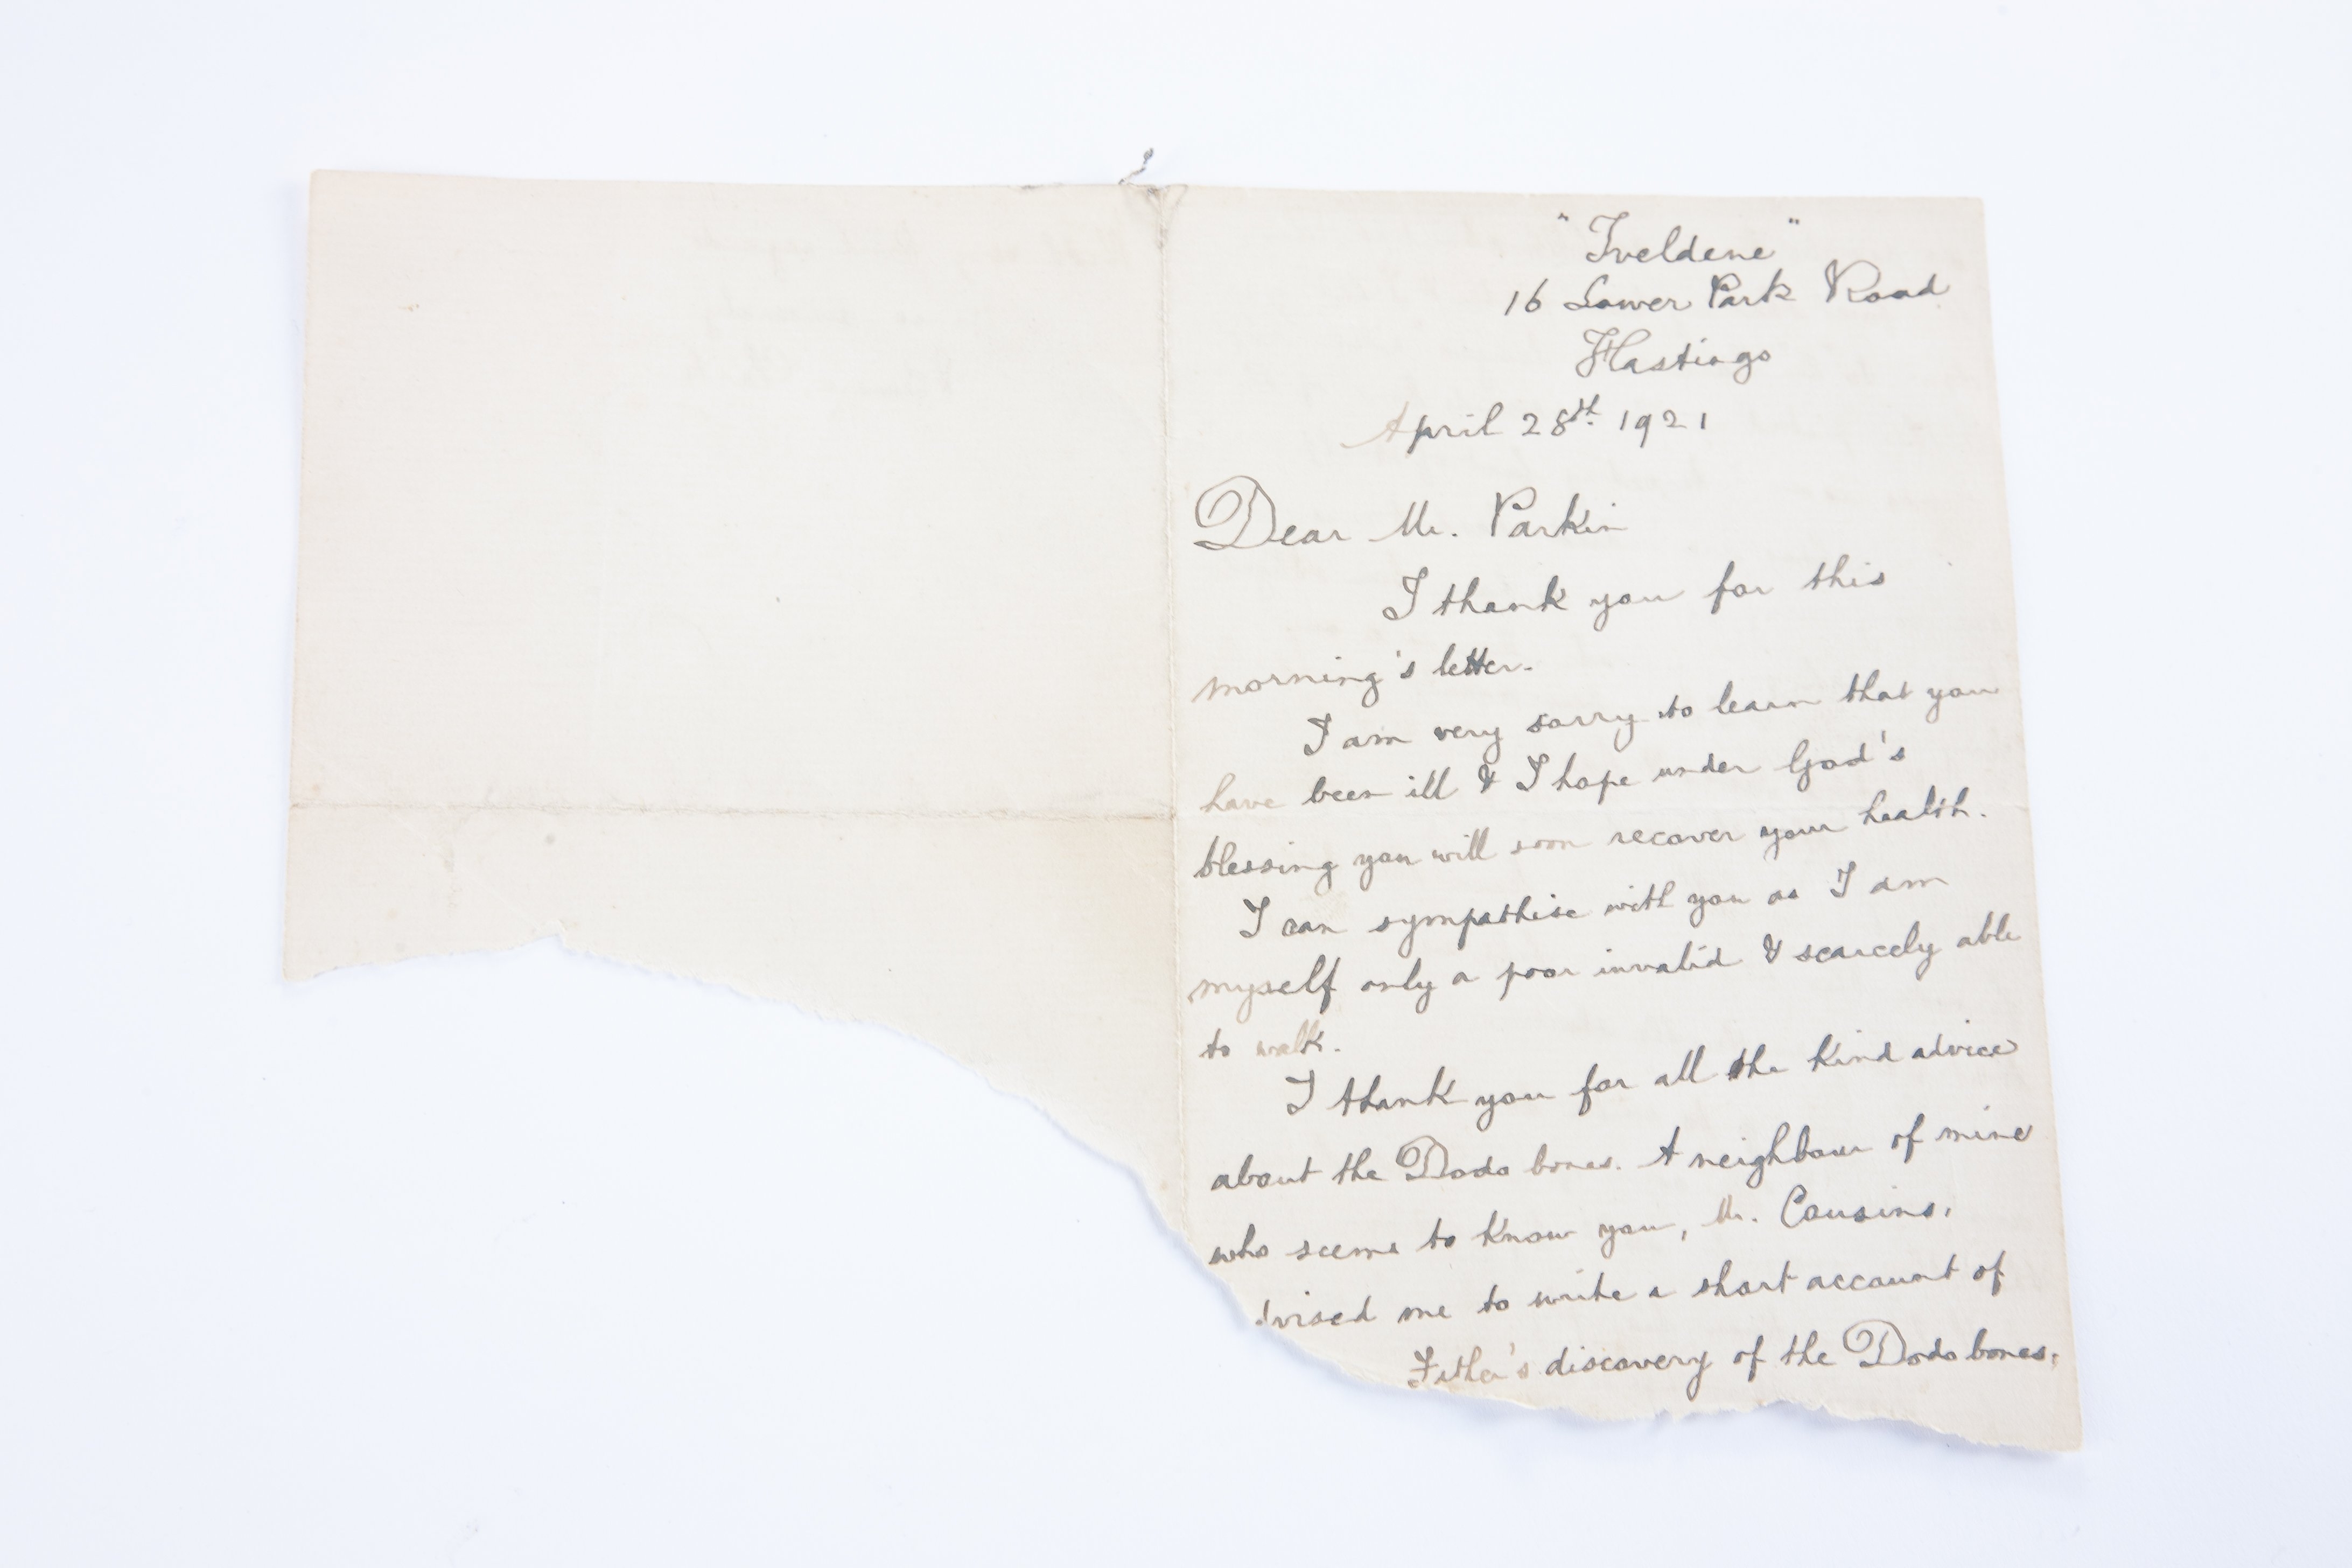 "Iveldene"
16 Lower Park Road
Hastings
April 28th. 1921
Dear Mr. Parkin
I thank you for this
morning's letter.
I am very sorry to learn that you
have been ill & I hope under God's
blessing you will soon recover your health.
I can sympathise with you as I am
myself only a poor invalid & scarcely able
to walk.
I thank you for all the kind advice
about the Dodo bones. A neighbour of mine
who seems to know you, Mr. Cousins,
dvised me to write a short account of
Father's discovery of the Dodo bones.